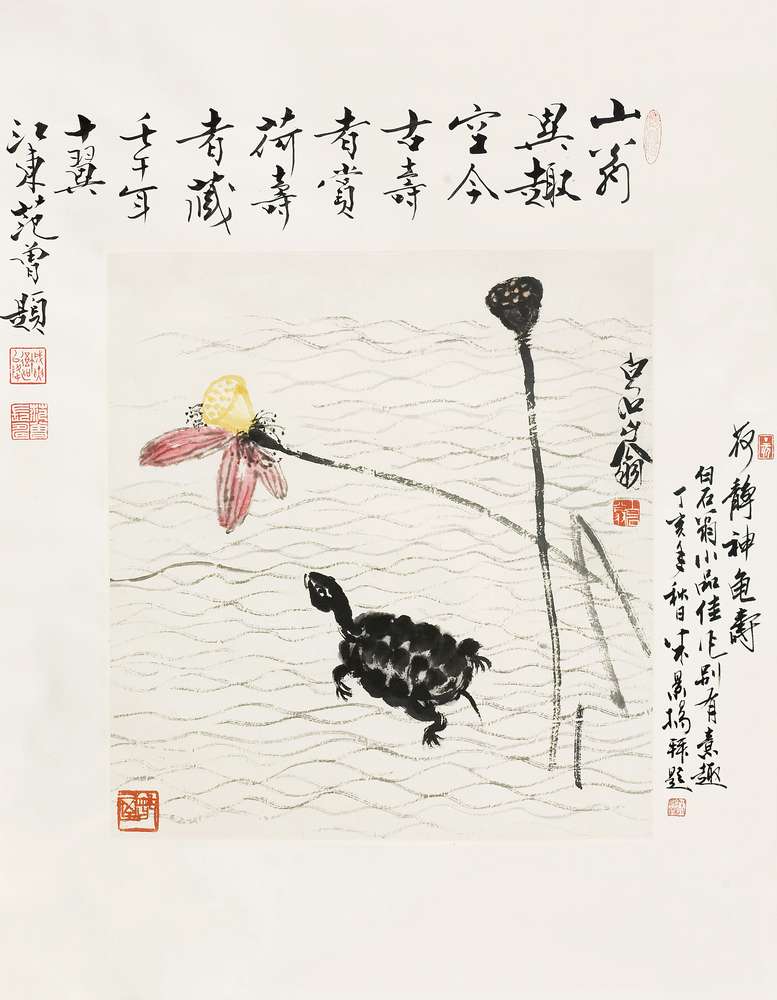 山翁
異趣
空今
古壽
者賞
荷壽
者藏
壬午年
十翼
江東范曾題
白石山翁
荷靜神龜壽
白石翁小品佳作别有意趣
丁亥年秋日米景揚拜題